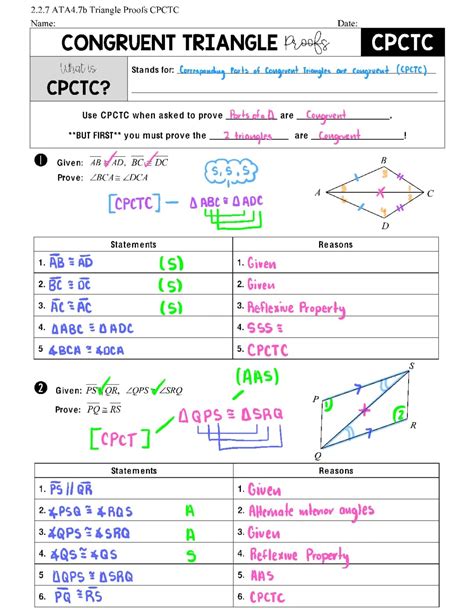 2.2.7 ATA4.7b Triangle Proofs CPCTC
Name: Date:
CONGRUENT TRIANGLE Proofs CPCTC
What is CPCTC?
Stands for: Corresponding Parts of Congruent Triangles are congruent (CPCTC)
Use CPCTC when asked to prove Parts of a Δ are Congruent.
**BUT FIRST** you must prove the 2 triangles are Congruent!
1 Given: AB ≅ AD, BC ≅ DC
Prove: ∠BCA ≅ ∠DCA
S, S, S
[CPCTC] — ΔABC ≅ ΔADC
B
A C
D
Statements Reasons
1. AB ≅ AD (S) 1. Given
2. BC ≅ DC (S) 2. Given
3. AC ≅ AC (S) 3. Reflexive Property
4. ΔABC ≅ ΔADC 4. SSS ≅
5 ∡BCA ≅ ∡DCA 5. CPCTC
(AAS)
2 Given: PS ∥ QR, ∠QPS ≅ ∠SRQ
Prove: PQ ≅ RS
ΔQPS ≅ ΔSRQ
[CPCT]
S
P 1)
(2) R
Q
Statements Reasons
1. PS ∥ QR 1. Given
2. ∡PSQ ≅ ∡RQS A 2. Alternate interior angles
3. ∡QPS ≅ ∡SRQ A 3. Given
4. ∡QS ≅ ∡QS S 4. Reflexive Property
5 ΔQPS ≅ ΔSRQ 5. AAS
6. PQ ≅ RS 6. CPCTC